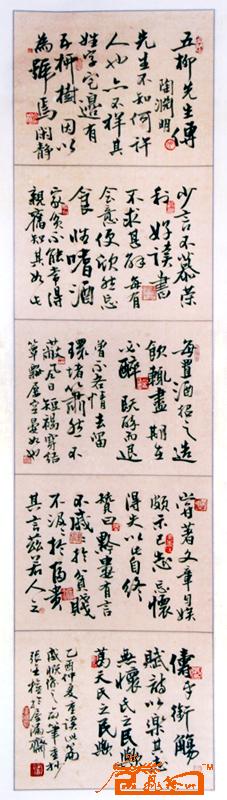 五柳先生傳
陶淵明
先生不知何許
人也亦不祥其
姓字宅邊有
五柳樹因以
為號焉閑靜
少言不慕榮
利好讀書
不求甚解每有
會意便欣然忘
食性嗜酒
家貧不能常得
親舊知其如此
每置酒招之造
飲輒盡期在
必醉既醉而退
曾不吝情去留
環堵蕭然不
蔽風日短褐穿結
簞瓢屢空晏如也
嘗著文章自娛
頗示己志忘懷
得失以此自終
贊曰黔婁有言
不戚戚於貧賤
不汲汲於富貴
其言茲若人之
儔乎銜觴
賦詩以樂其志
無懷氏之民歟
葛天氏之民歟
乙酉仲夏